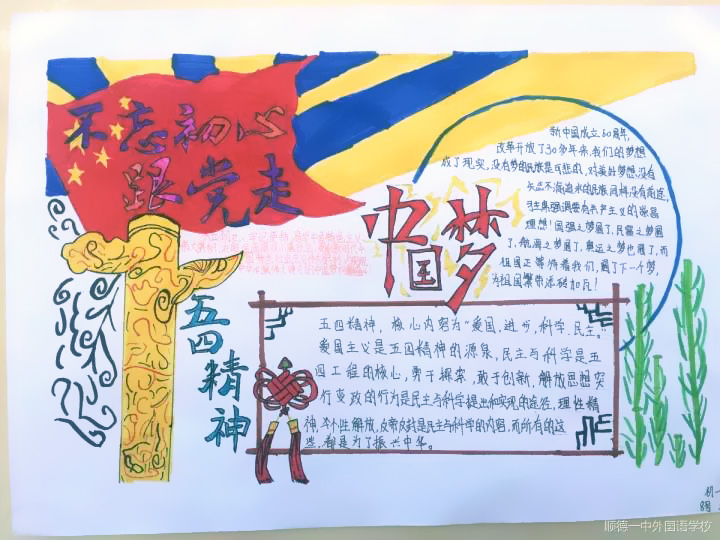 不忘初心
跟党走
中国梦
新中国成立60周年,
改革开放了30多年来,我们的梦想
成了现实,没有梦的民族是可悲的,对美好梦想,没有
的民族同样没有前途,
理想!国强之梦圆了,民富之梦圆
了,航海之梦圆了,奥运之梦也圆了,而
祖国正等待着我们,圆了下一个梦,
为祖国繁荣添砖加瓦!
五四精神
五四精神,核心内容为“爱国,进步,科学,民主。”
爱国主义是五四精神的源泉,民主与科学是五
四工程的核心,勇于探索,敢于创新,解放思想实
行变政的行为是民主与科学提出和实现的途径,理性精
神,个性解放,反帝反封是民主与科学的内容,而所有的这
些,都是为了振兴中华。
初一
顺德一中外国语学校